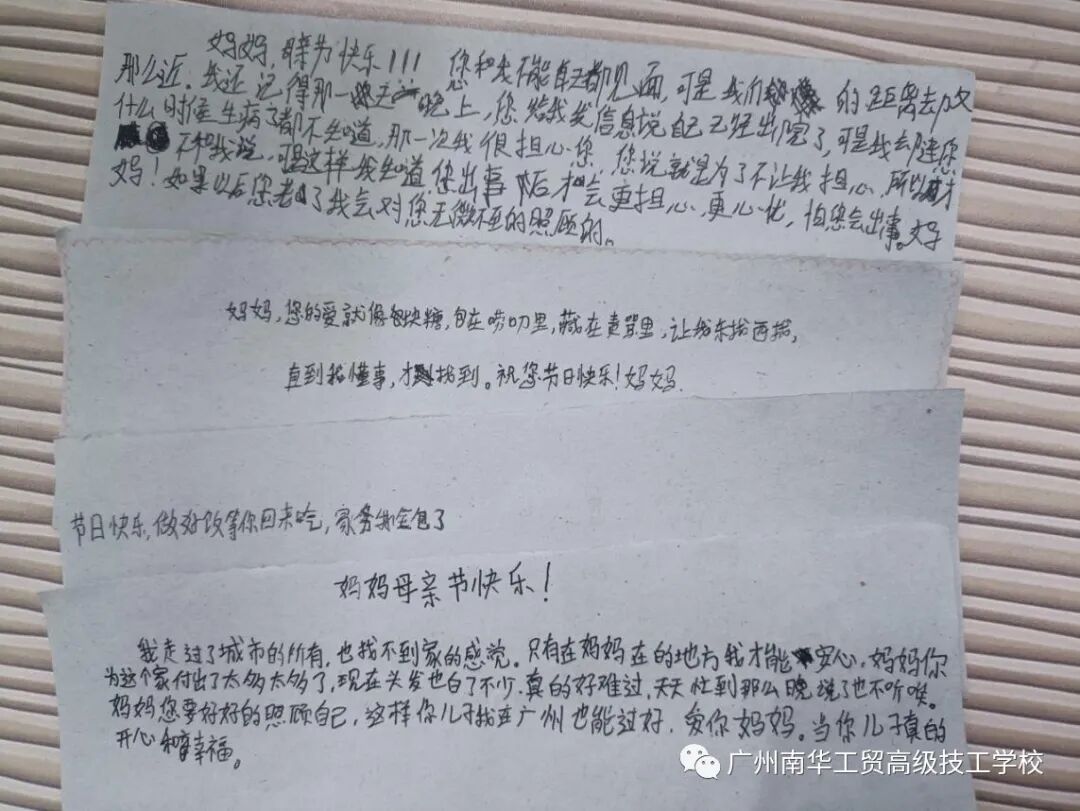 妈妈，亲节快乐!!! 您和我不能每天都见面，可是我们的距离去
那么近。我还记得那一天晚上，您给我发信息说自己已经出院了，可是我却连您
什么时候生病了都不知道，那一次我很担心您 您说就是为了不让我担心，所以才
不和我说，可这样我知道您出事后才会更担心，更心忧，怕您会出事。妈
妈！如果以后您老了我会对您无微不至的照顾的。
妈妈，您的爱就像包块糖，包在唠叨里，藏在责骂里，让我东找西找，
直到我懂事，才找到。祝您节日快乐！妈妈
节日快乐，做好饭等你回来吃，家务我全包了
妈妈母亲节快乐！
我走过了城市的所有，也找不到家的感觉。只有在妈妈在的地方我才能安心，妈妈你
为这个家付出了太多太多了，现在头发也白了不少，真的好难过，天天忙到那么晚说了也不听唉。
妈妈您要好好的照顾自己，这样你儿子我在广州也能过好，爱你妈妈。当你儿子真的
开心和幸福。
广州南华工贸高级技工学校